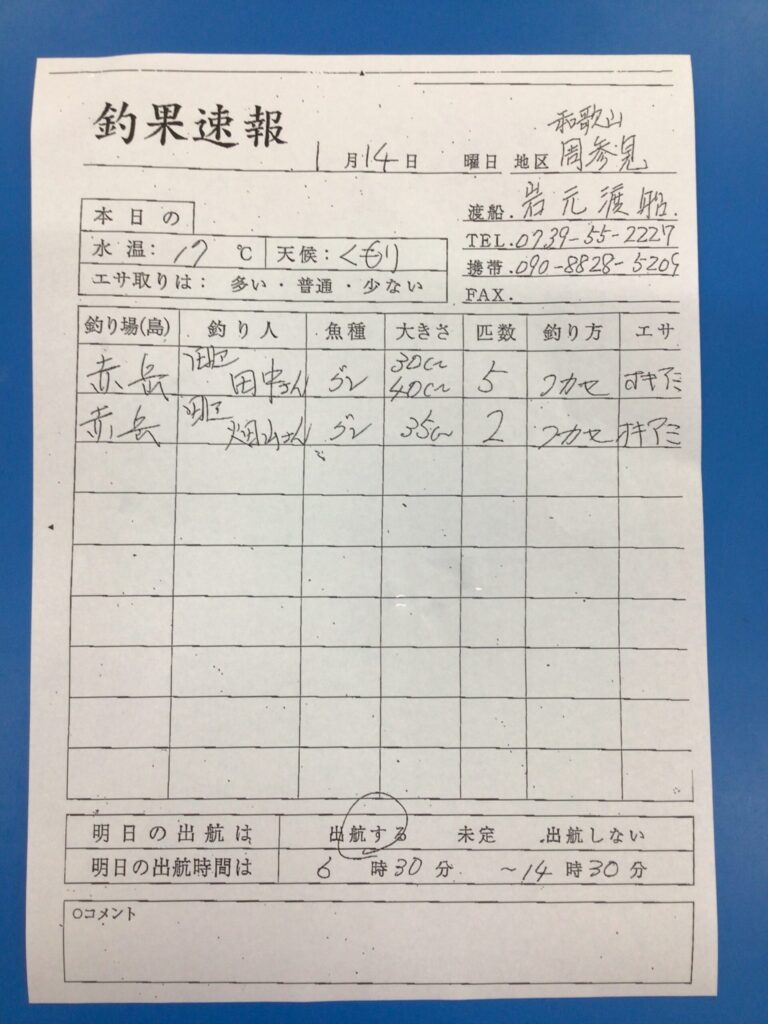 釣果速報
1月14日 曜日 地区 和歌山 周参見
渡船.岩元渡船.
TEL.0739-55-2227
携帯.090-8828-5209
FAX.
本日の
水温: 17 ℃ 天候: くもり
エサ取りは: 多い・普通・少ない
釣り場(島) 釣り人 魚種 大きさ 匹数 釣り方 エサ
赤岳 田中さん グレ 30cm 40cm 5 フカセ オキアミ
赤岳 畑山さん グレ 35cm 2 フカセ オキアミ
明日の出航は 出航する 未定 出航しない
明日の出航時間は 6時30分 ~14時30分
○コメント